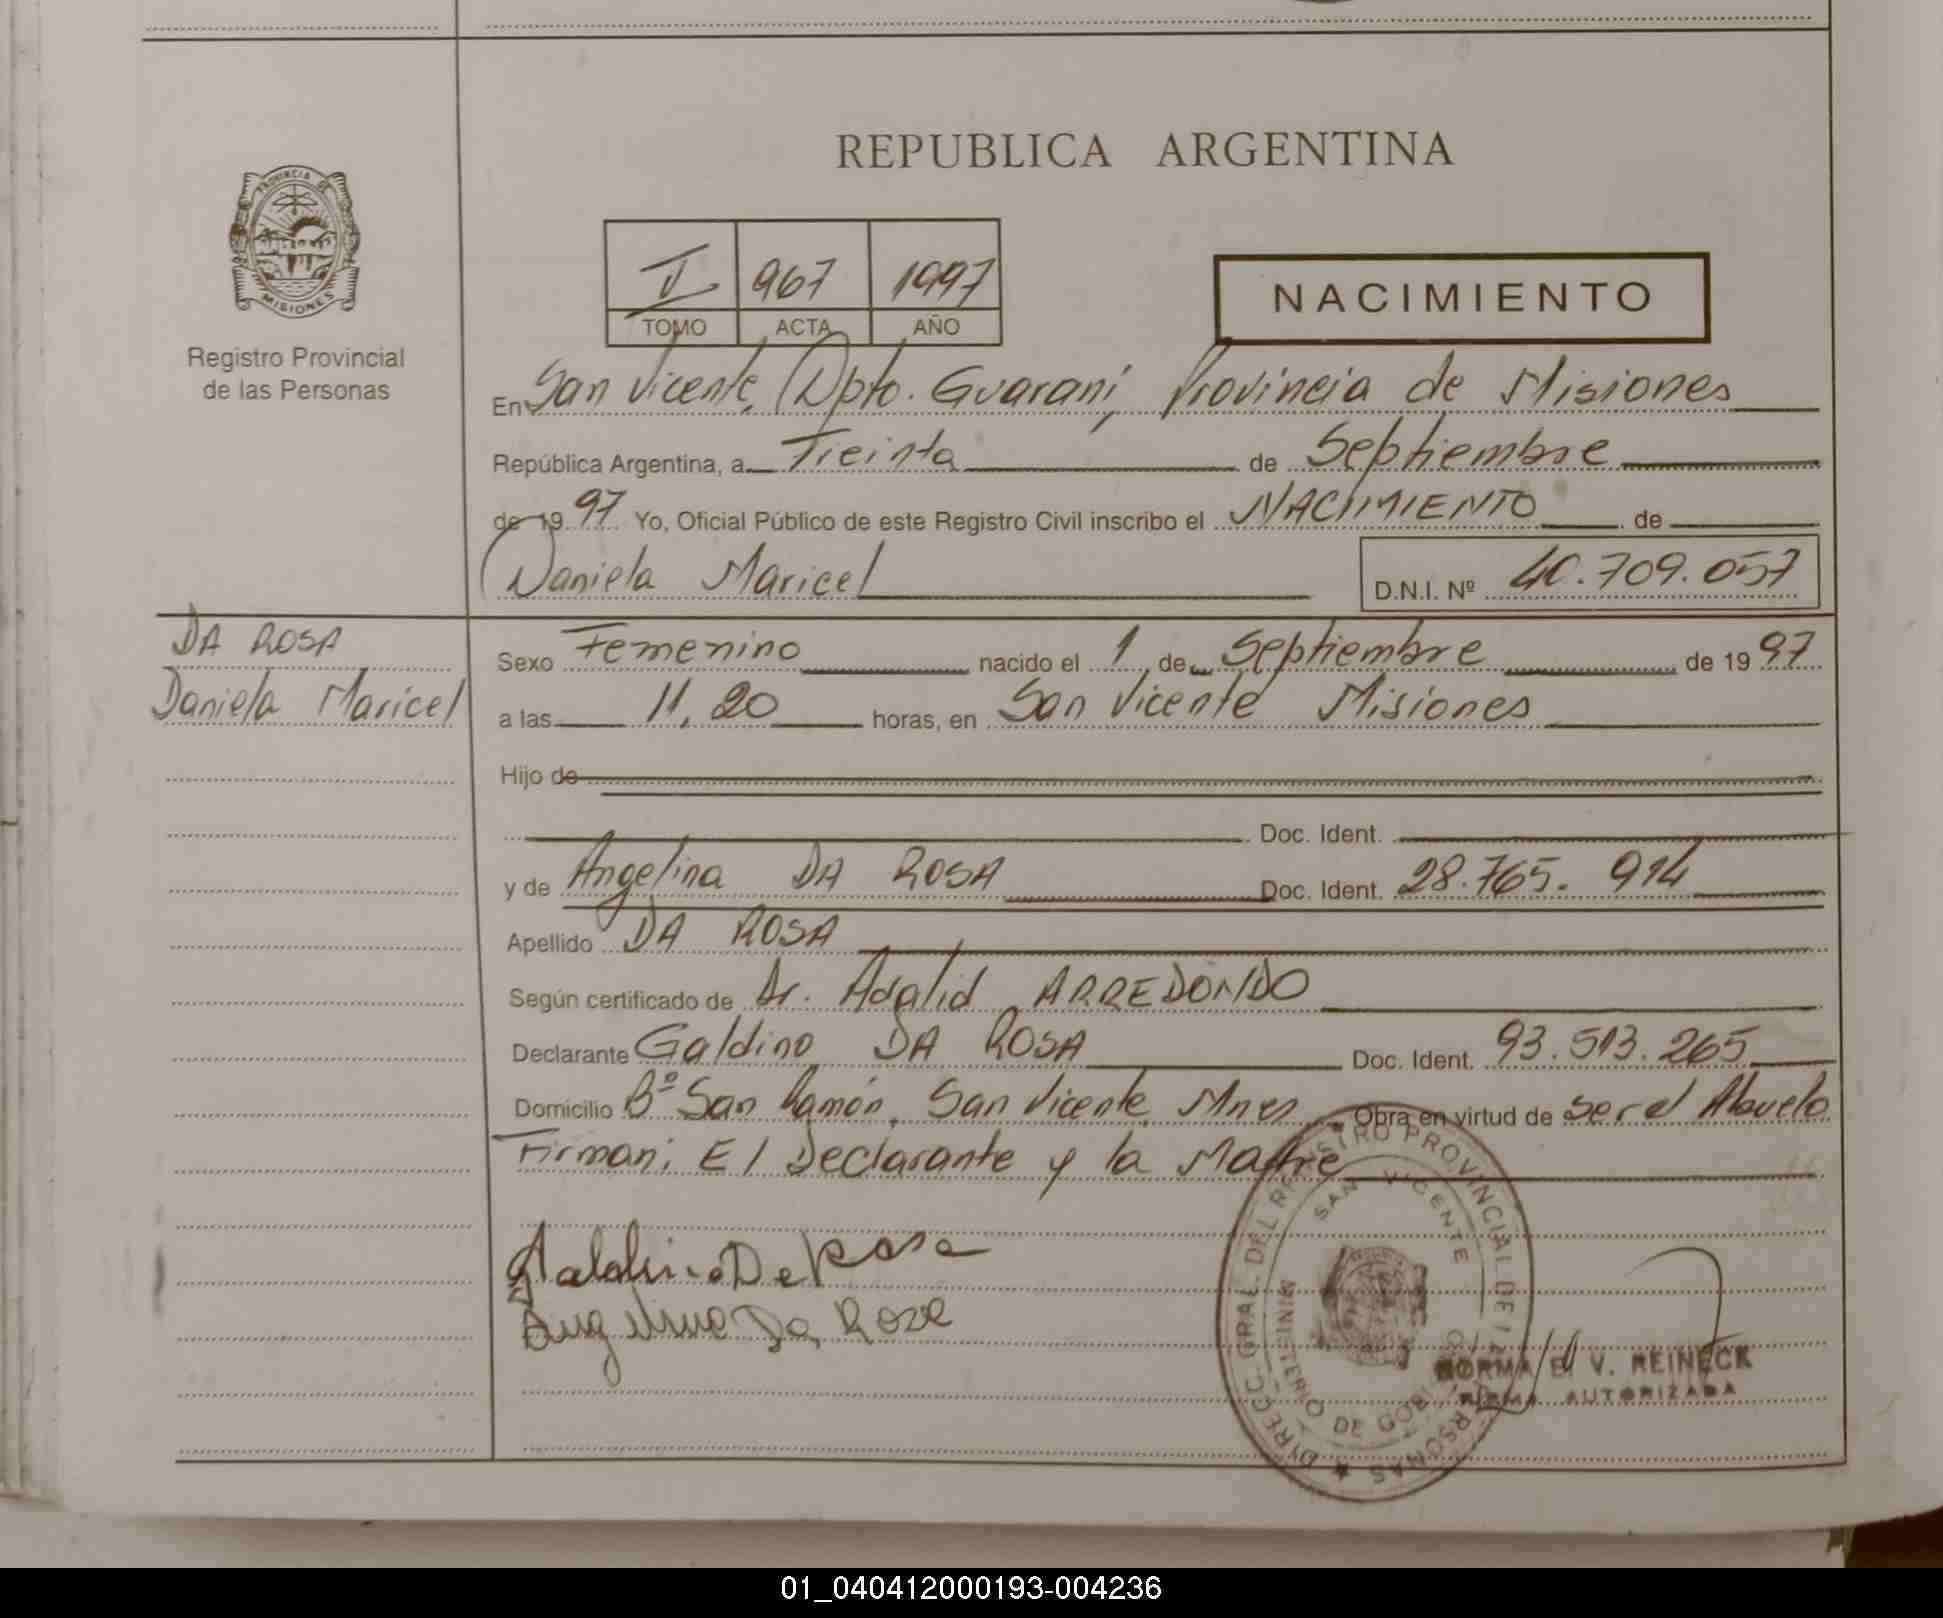 REPUBLICA ARGENTINA
PROVINCIA DE
MISIONES
Registro Provincial
de las Personas
V 967 1997
TOMO ACTA AÑO
NACIMIENTO
En San Vicente, Dpto. Guaraní, Provincia de Misiones
República Argentina, a Treinta de Septiembre
de 19 97 Yo, Oficial Público de este Registro Civil inscribo el NACIMIENTO de
Daniela Maricel D.N.I. Nº 40.709.057
DA ROSA
Daniela Maricel
Sexo Femenino nacido el 1 de Septiembre de 19 97
a las 11,20 horas, en San Vicente Misiones
Hijo de
Doc. Ident.
y de Angelina DA ROSA Doc. Ident. 28.765.914
Apellido DA ROSA
Según certificado de Dr. Adalid ARREDONDO
Declarante Galdino DA ROSA Doc. Ident. 93.513.265
Domicilio Bº San Ramón, San Vicente, Mnes Obra en virtud de ser el Abuelo
Firman: El Declarante y la Madre
Galdino De Rosa
Angelina Da Roza
DIRECC. GRAL. DEL REGISTRO PROVINCIAL DE LAS PERSONAS
SAN VICENTE
MINISTERIO DE GOBIERNO
NORMA E. V. REINECK
FIRMA AUTORIZADA
01_040412000193-004236